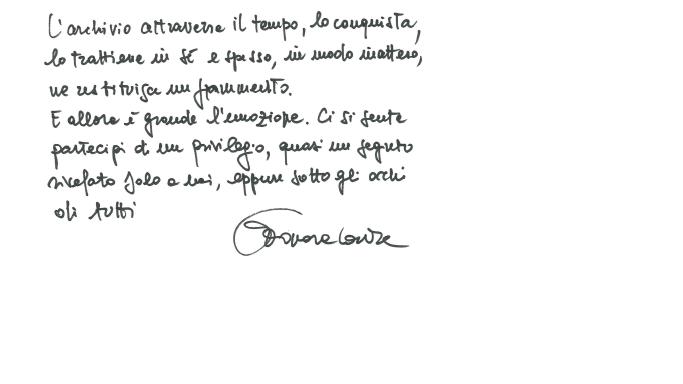 L'archivio attraversa il tempo, lo conquista,
lo trattiene in sé e spesso, in modo inatteso,
ne restituisce un frammento.
E allora è grande l'emozione. Ci si sente
partecipi di un privilegio, quasi un segreto
rivelato solo a noi, eppure sotto gli occhi
di tutti